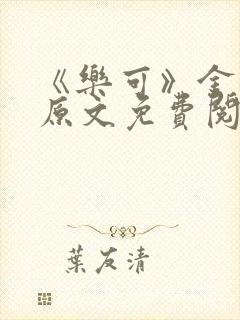 《樂可》全
原文免費閱
葉友清